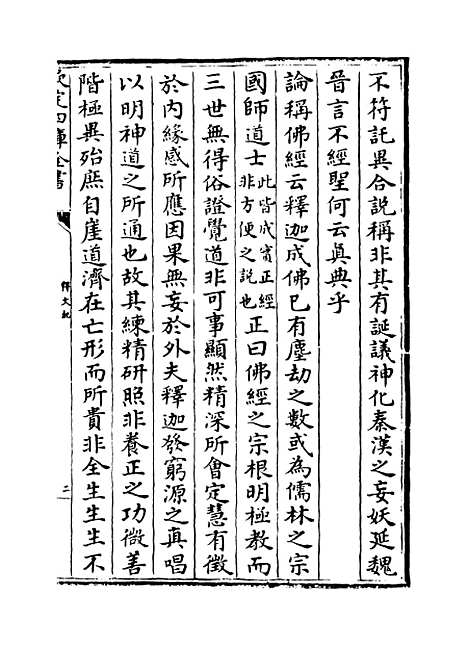 不符託異合説稱非其有誕議神化秦漢之妄妖延魏
晉言不經聖何云真典乎
論稱佛經云釋迦成佛已有塵劫之數或為儒林之宗
國師道士此皆成實正經非方便之説也正曰佛經之宗根明極教而
三世無得俗證覺道非可事顯然精深所會定慧有徵
於内緣感所應因果無妄於外夫釋迦發窮源之真唱
以明神道之所通也故其練精研照非養正之功微善
階極異殆庶自崖道濟在亡形而所貴非全生生生不
欽定四庫全書
釋文紀
二